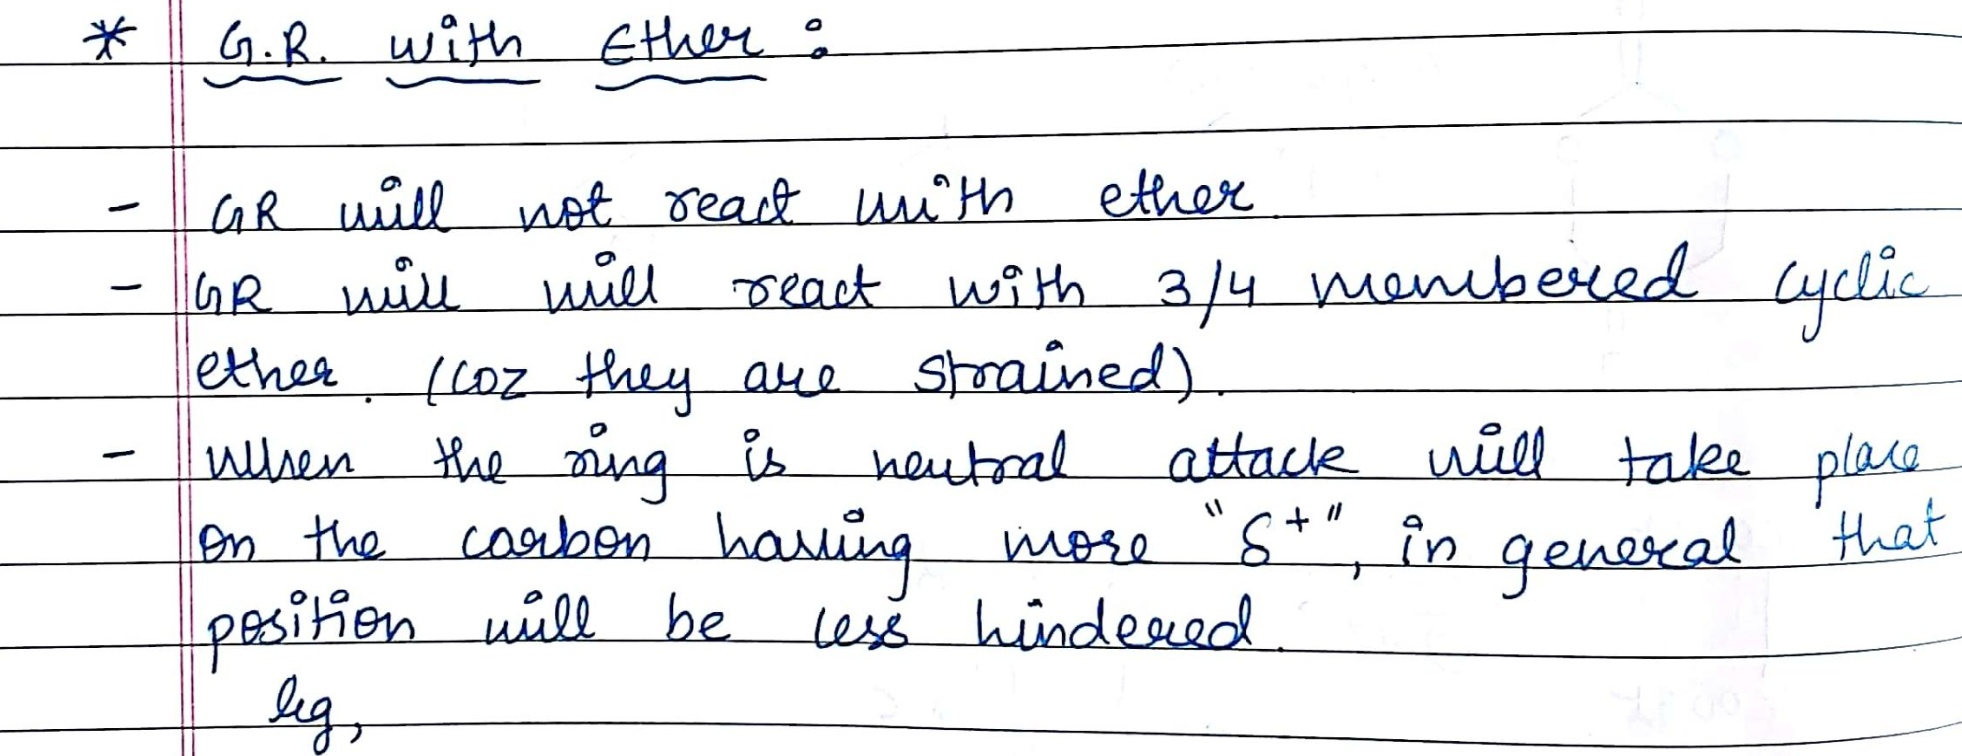 * G.R. with Ether :
- GR will not react with ether.
- GR will will react with 3/4 membered cyclic
ether. (coz they are strained).
- When the ring is neutral attack will take place
on the carbon having more "δ+", in general that
position will be less hindered.
eg,